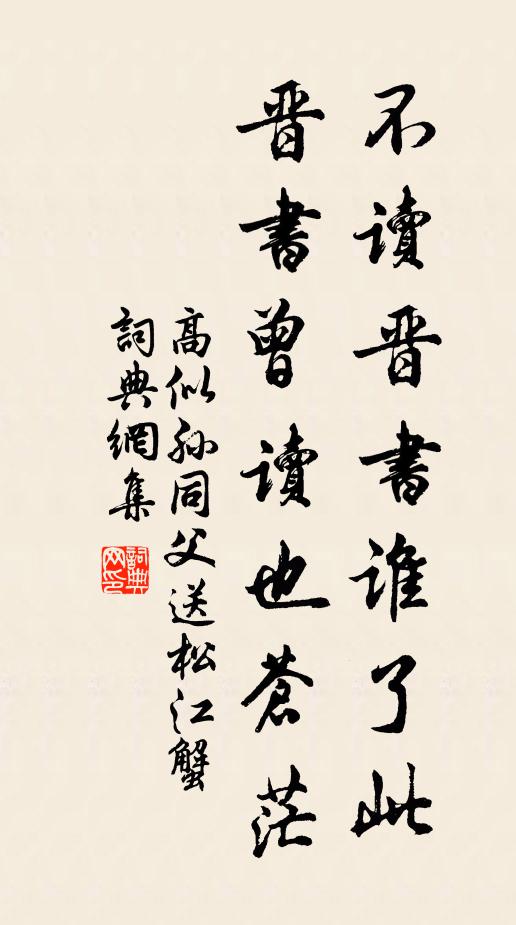 不讀晉書誰了此
晉書曾讀也蒼茫
高似孫同父送松江蟹
詞典網集
詞典网印